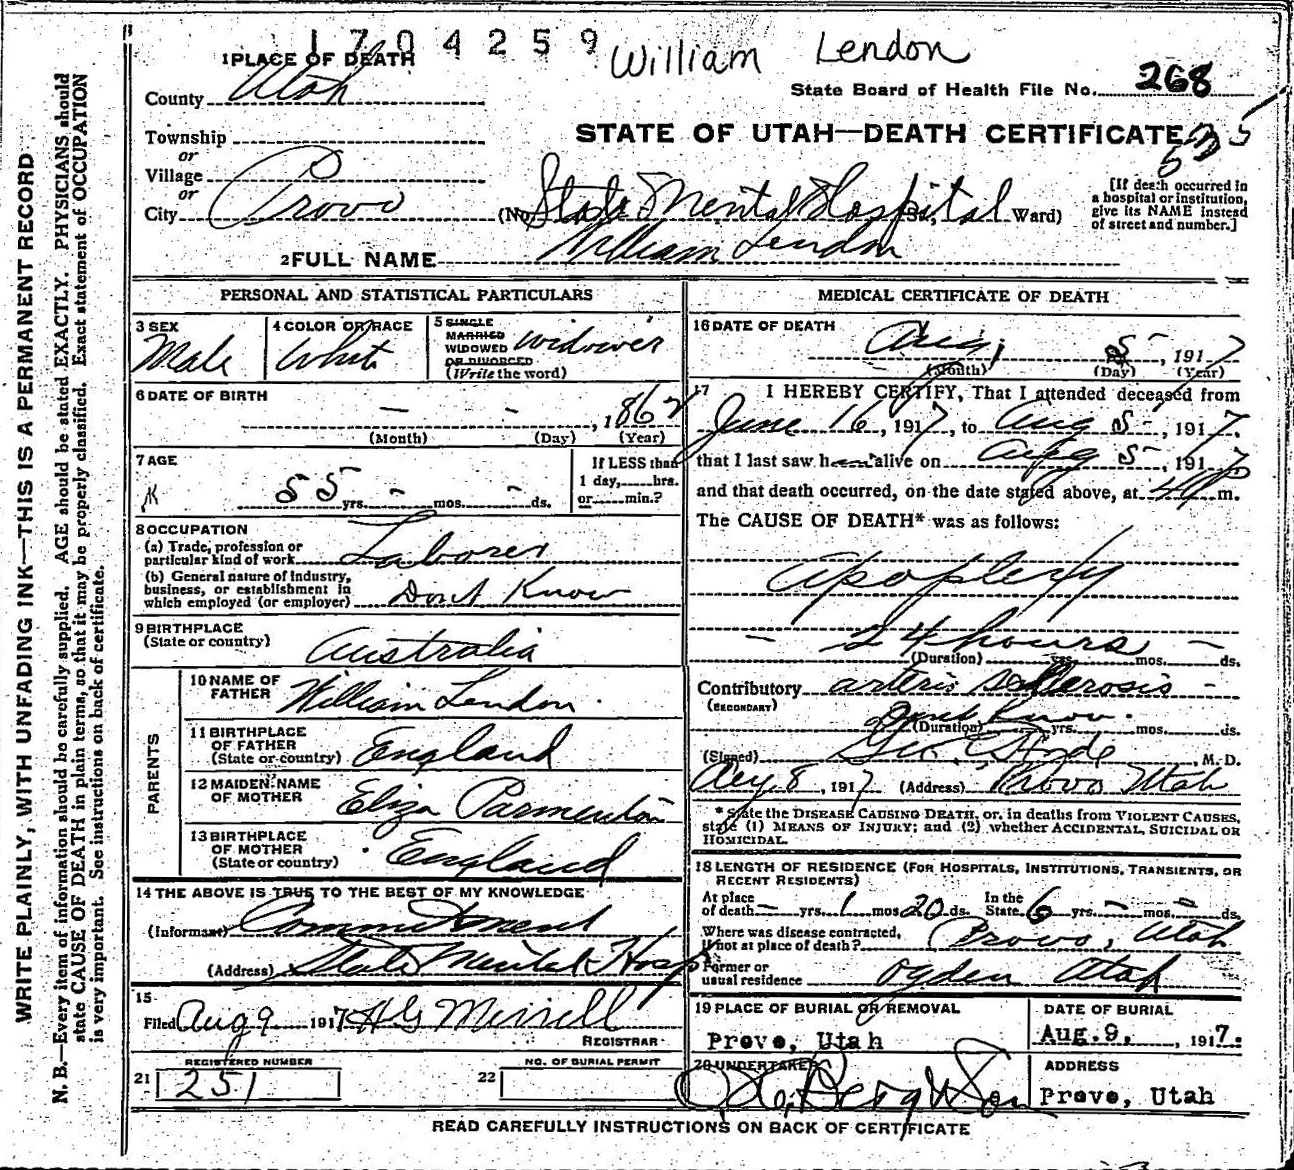 1704259
William Lendon
State Board of Health File No. 268
STATE OF UTAH—DEATH CERTIFICATE
1 PLACE OF DEATH
County Utah
Township
or
Village
or
City Provo
(No. State Mental Hospital St., Ward)
[If death occurred in
a hospital or institution,
give its NAME instead
of street and number.]
2 FULL NAME William Lendon
PERSONAL AND STATISTICAL PARTICULARS
3 SEX
Male
4 COLOR OR RACE
Whit
5 SINGLE
MARRIED
WIDOWED
OR DIVORCED
(Write the word)
widower
6 DATE OF BIRTH
- - , 1862
(Month) (Day) (Year)
7 AGE
55 yrs. - mos. - ds.
If LESS than
1 day, hrs.
or min.?
8 OCCUPATION
(a) Trade, profession or
particular kind of work Laborer
(b) General nature of industry,
business, or establishment in
which employed (or employer) Dont Know
9 BIRTHPLACE
(State or country) Australia
PARENTS
10 NAME OF
FATHER William Lendon.
11 BIRTHPLACE
OF FATHER
(State or country) England
12 MAIDEN NAME
OF MOTHER Eliza
13 BIRTHPLACE
OF MOTHER
(State or country) England
14 THE ABOVE IS TRUE TO THE BEST OF MY KNOWLEDGE
(Informant) Commitment
(Address) State Mental Hosp
15
Filed Aug 9 1917 H G Merrill
REGISTRAR
REGISTERED NUMBER
21 251
NO. OF BURIAL PERMIT
22
MEDICAL CERTIFICATE OF DEATH
16 DATE OF DEATH
Aug, 5, 1917
(Month) (Day) (Year)
17 I HEREBY CERTIFY, That I attended deceased from
June 16, 1917, to Aug 5-, 1917.
that I last saw h alive on Aug 5-, 1917
and that death occurred, on the date stated above, at m.
The CAUSE OF DEATH* was as follows:
apoplexy
- 24 hours -
(Duration) yrs. mos. ds.
Contributory arterio sclerosis -
(SECONDARY)
Dont Know.
(Duration) yrs. mos. ds.
(Signed) Geo. E. Hyde, M. D.
Aug. 8, 1917 (Address) Provo Utah
* State the DISEASE CAUSING DEATH, or, in deaths from VIOLENT CAUSES,
state (1) MEANS OF INJURY; and (2) whether ACCIDENTAL, SUICIDAL OR
HOMICIDAL.
18 LENGTH OF RESIDENCE (FOR HOSPITALS, INSTITUTIONS, TRANSIENTS, OR
RECENT RESIDENTS)
At place
of death - yrs. 1 mos. 20 ds.
In the
State 6 yrs. - mos. - ds.
Where was disease contracted,
if not at place of death? Provo, Utah
Former or
usual residence Ogden Utah
19 PLACE OF BURIAL OR REMOVAL
Provo, Utah
DATE OF BURIAL
Aug. 9, 1917.
20 UNDERTAKER
ADDRESS
Provo, Utah
READ CAREFULLY INSTRUCTIONS ON BACK OF CERTIFICATE
WRITE PLAINLY, WITH UNFADING INK—THIS IS A PERMANENT RECORD
N. B.—Every item of information should be carefully supplied. AGE should be stated EXACTLY. PHYSICIANS should
state CAUSE OF DEATH in plain terms, so that it may be properly classified. Exact statement of OCCUPATION
is very important. See instructions on back of certificate.